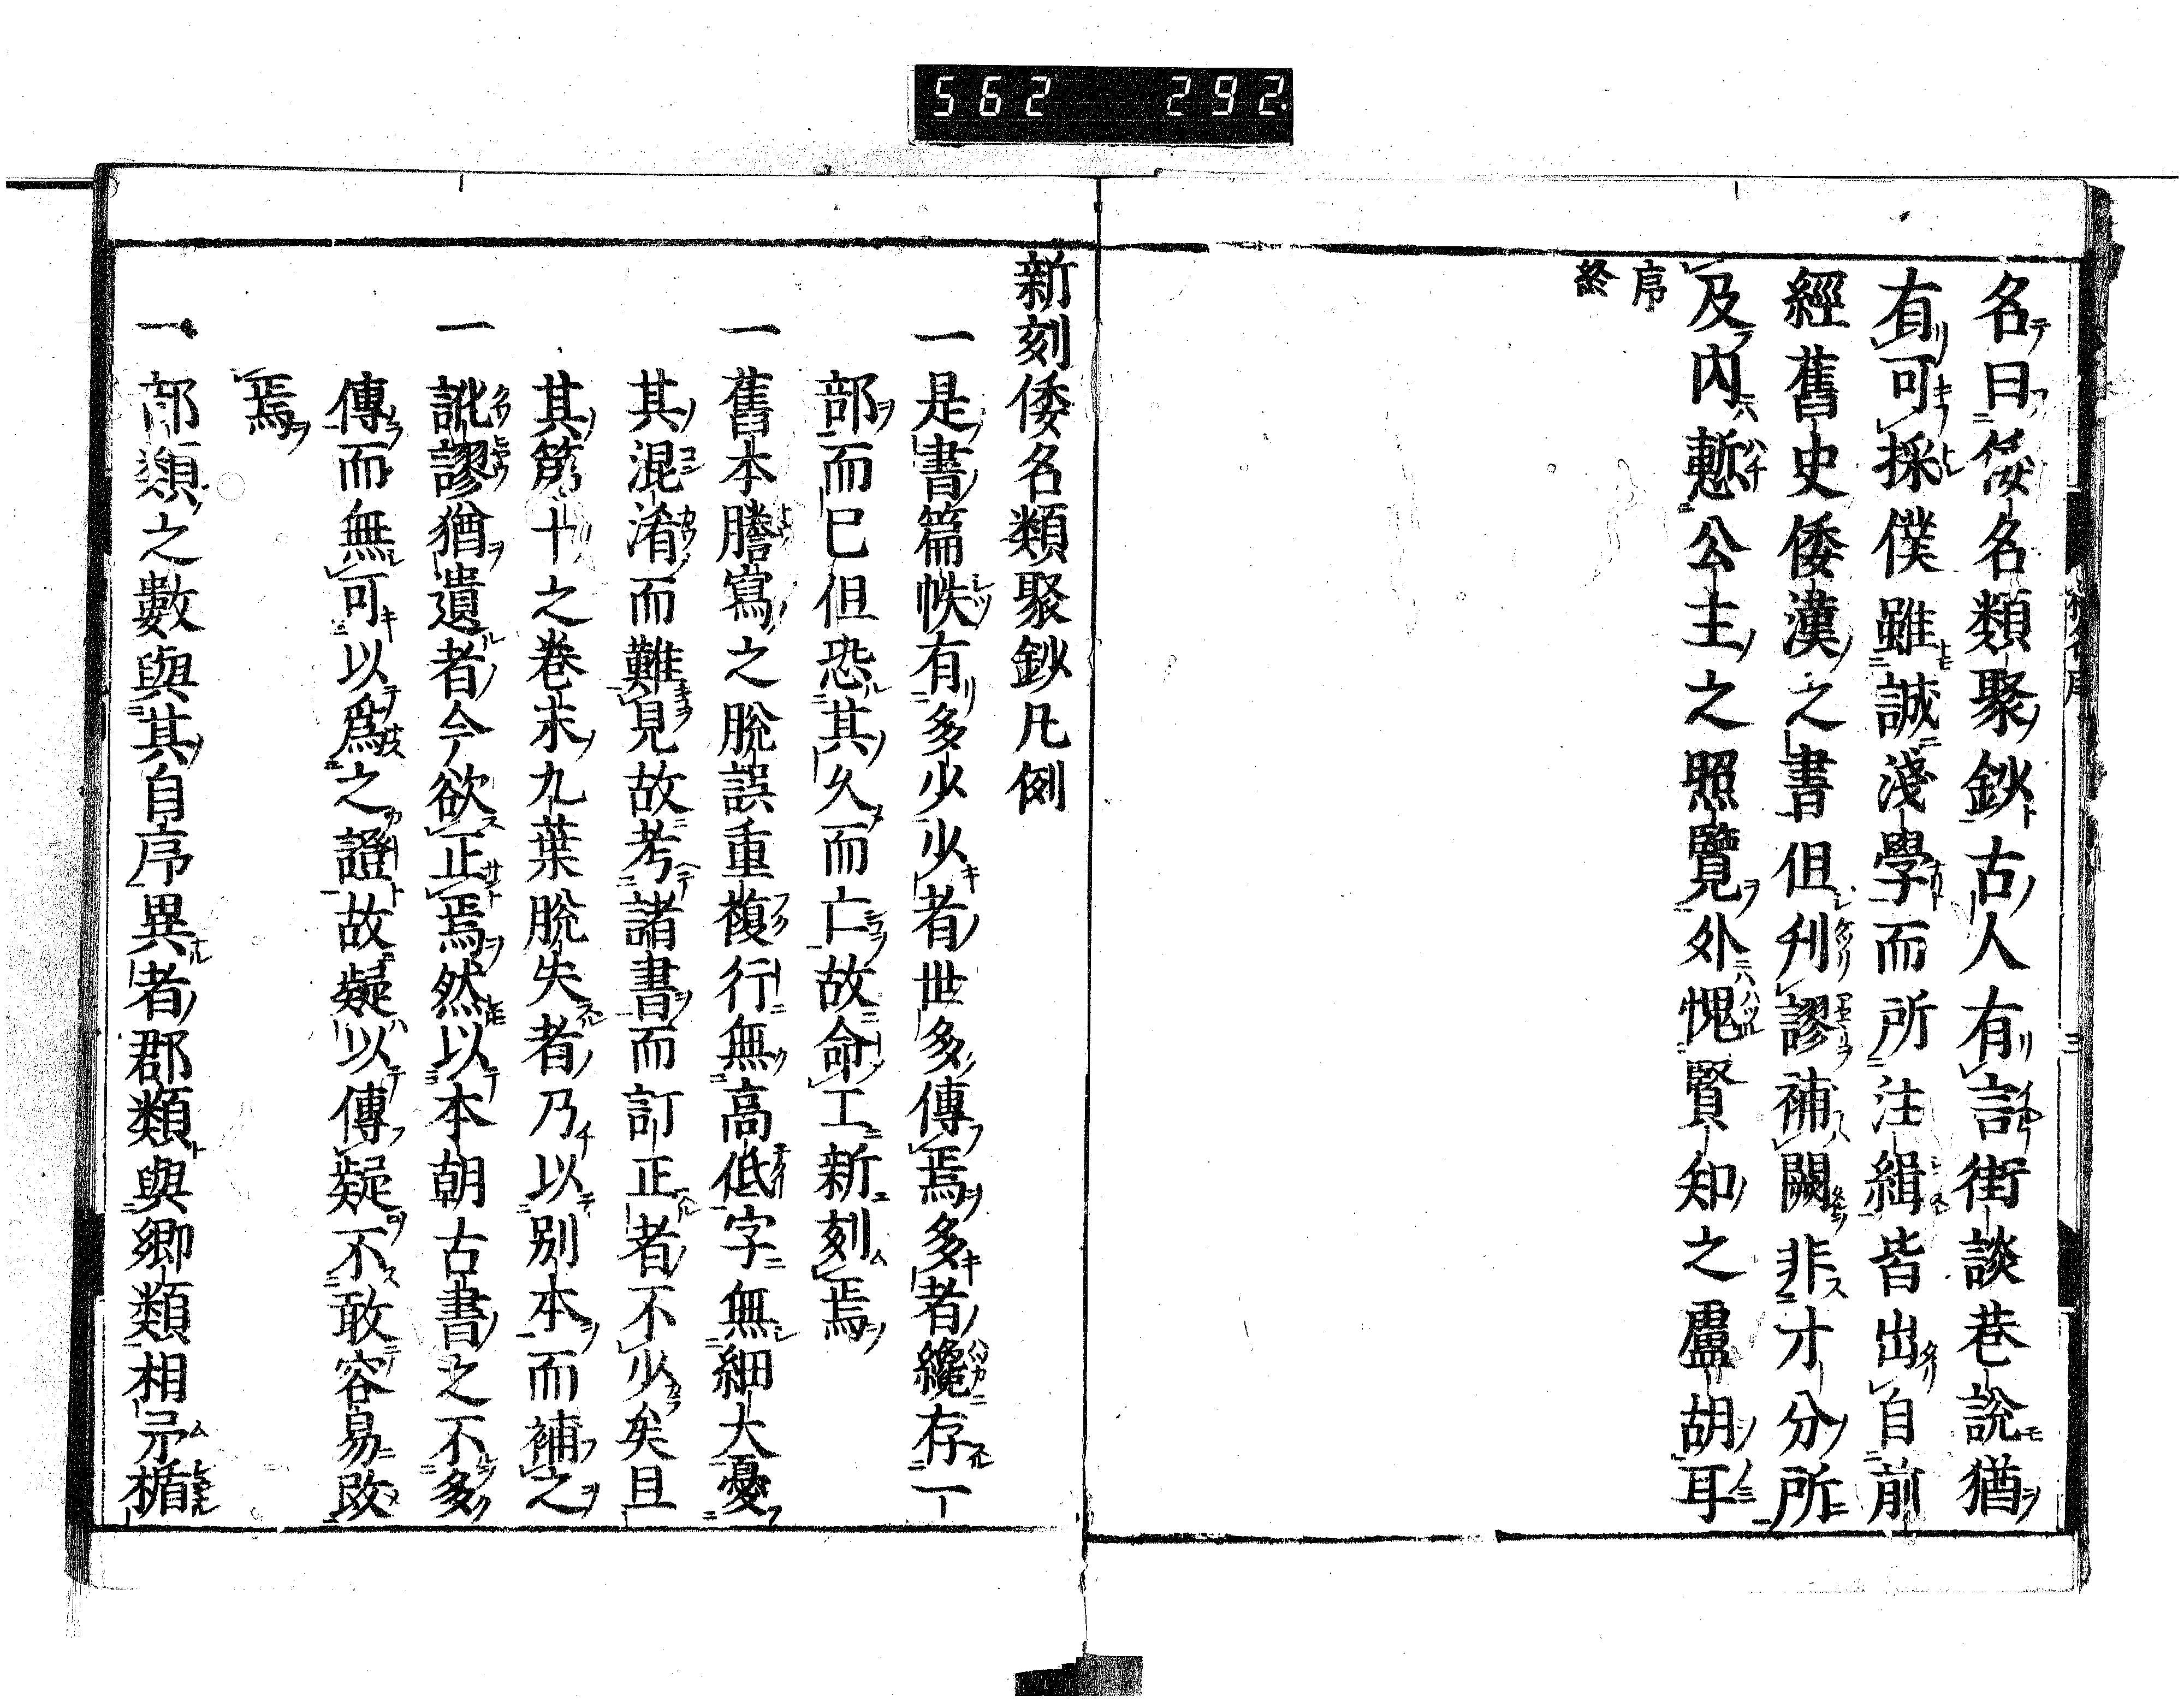 562 292.
名曰倭名類聚鈔古人有言街談巷說猶
有可採僕雖誠淺學而所注緝皆出自前
經舊史倭漢之書但刋謬補闕非才分所
及內慙公主之照覽外愧賢知之盧胡耳
序
終
新刻倭名類聚鈔凡例
一是書篇帙有多少少者世多傳焉多者纔存一
部而已但恐其久而亡故命工新刻焉
一舊本謄寫之脫誤重複行無高低字無細大憂
其混淆而難見故考諸書而訂正者不少矣且
其第十之卷末九葉脫失者乃以別本而補之
一訛謬猶遺者今欲正焉然以本朝古書之不多
傳而無可以爲之證故疑以傳疑不敢容易改
焉
一部類之數與其自序異者郡類與鄉類相矛楯